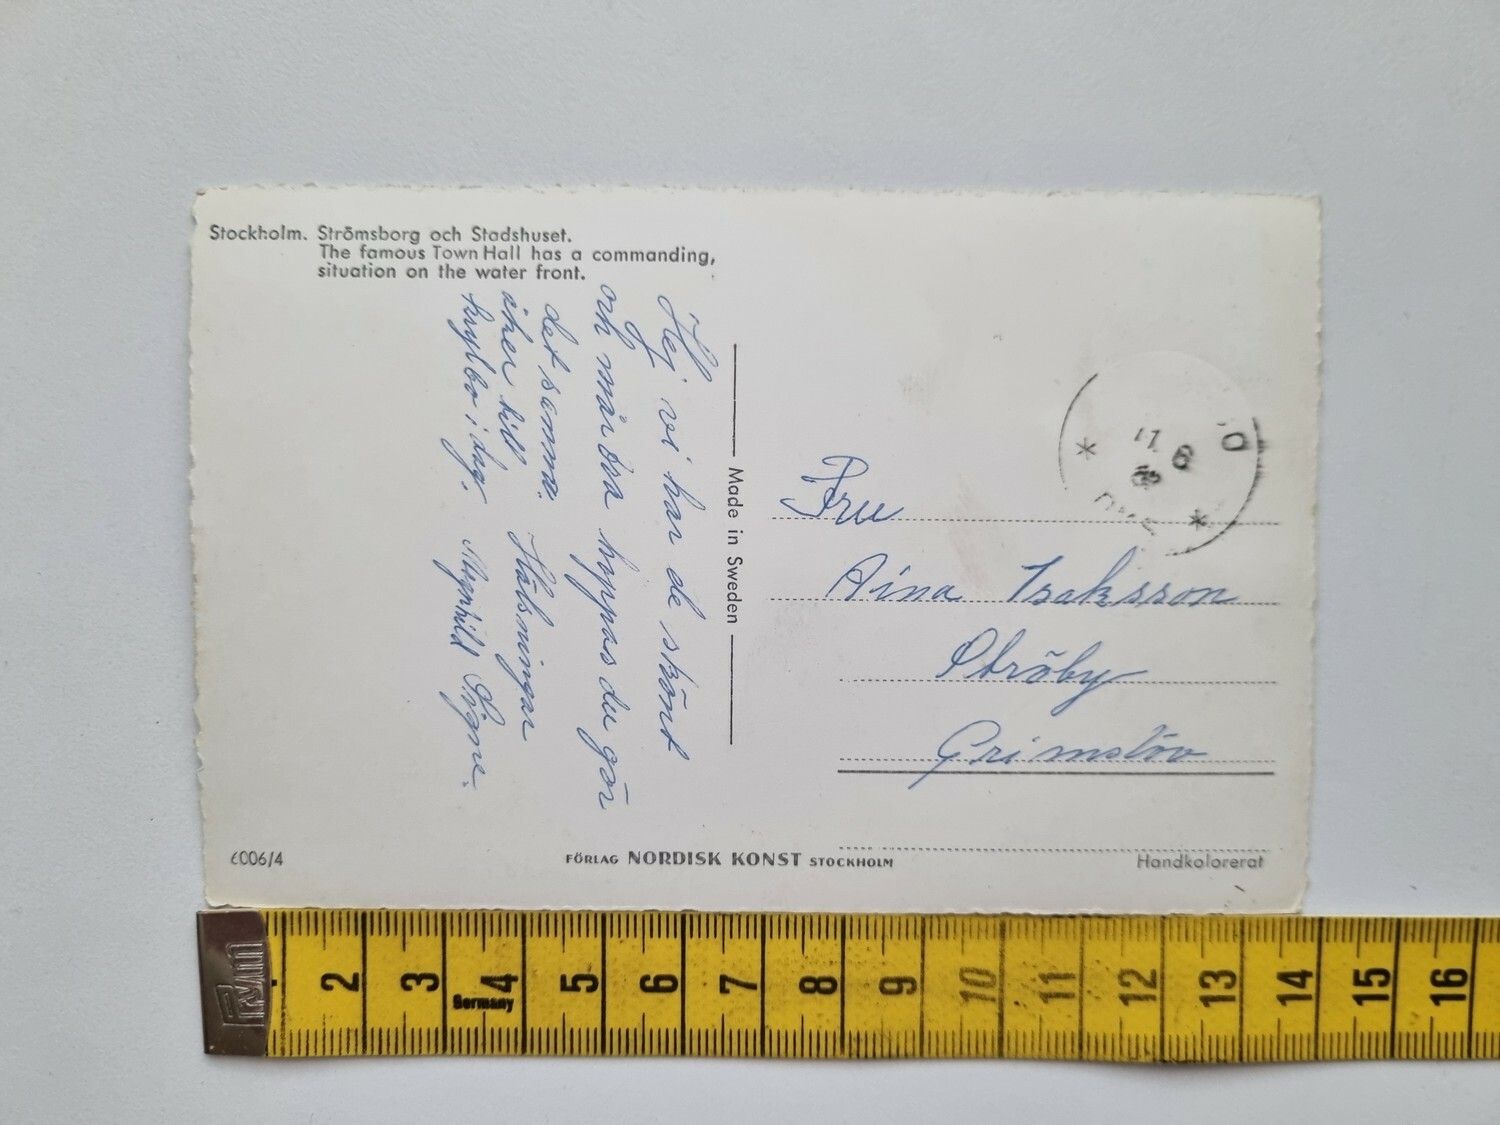 Stockholm. Strömsborg och Stadshuset.
The famous Town Hall has a commanding,
situation on the water front.
Hej vi har de skönt
och mår bra hoppas du gör
det samma. Hälsningar
åker till
Krylbo i dag. Signe.
Made in Sweden
17 6
Fru
Aina Isaksson
Ströby
Grimslöv
6006/4
FÖRLAG NORDISK KONST STOCKHOLM
Handkolorerat
Prym
2 3 4 5 6 7 8 9 10 11 12 13 14 15 16
Germany